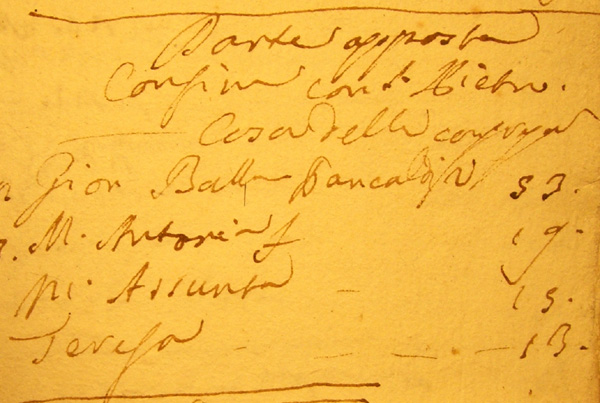 Parte opposta
Confina con S. Pietro.
Casa delli
Gion Batta Pancaldi 53.
M. Antonia f 19.
M. Assunta - 15.
Teresa - - - - 13.